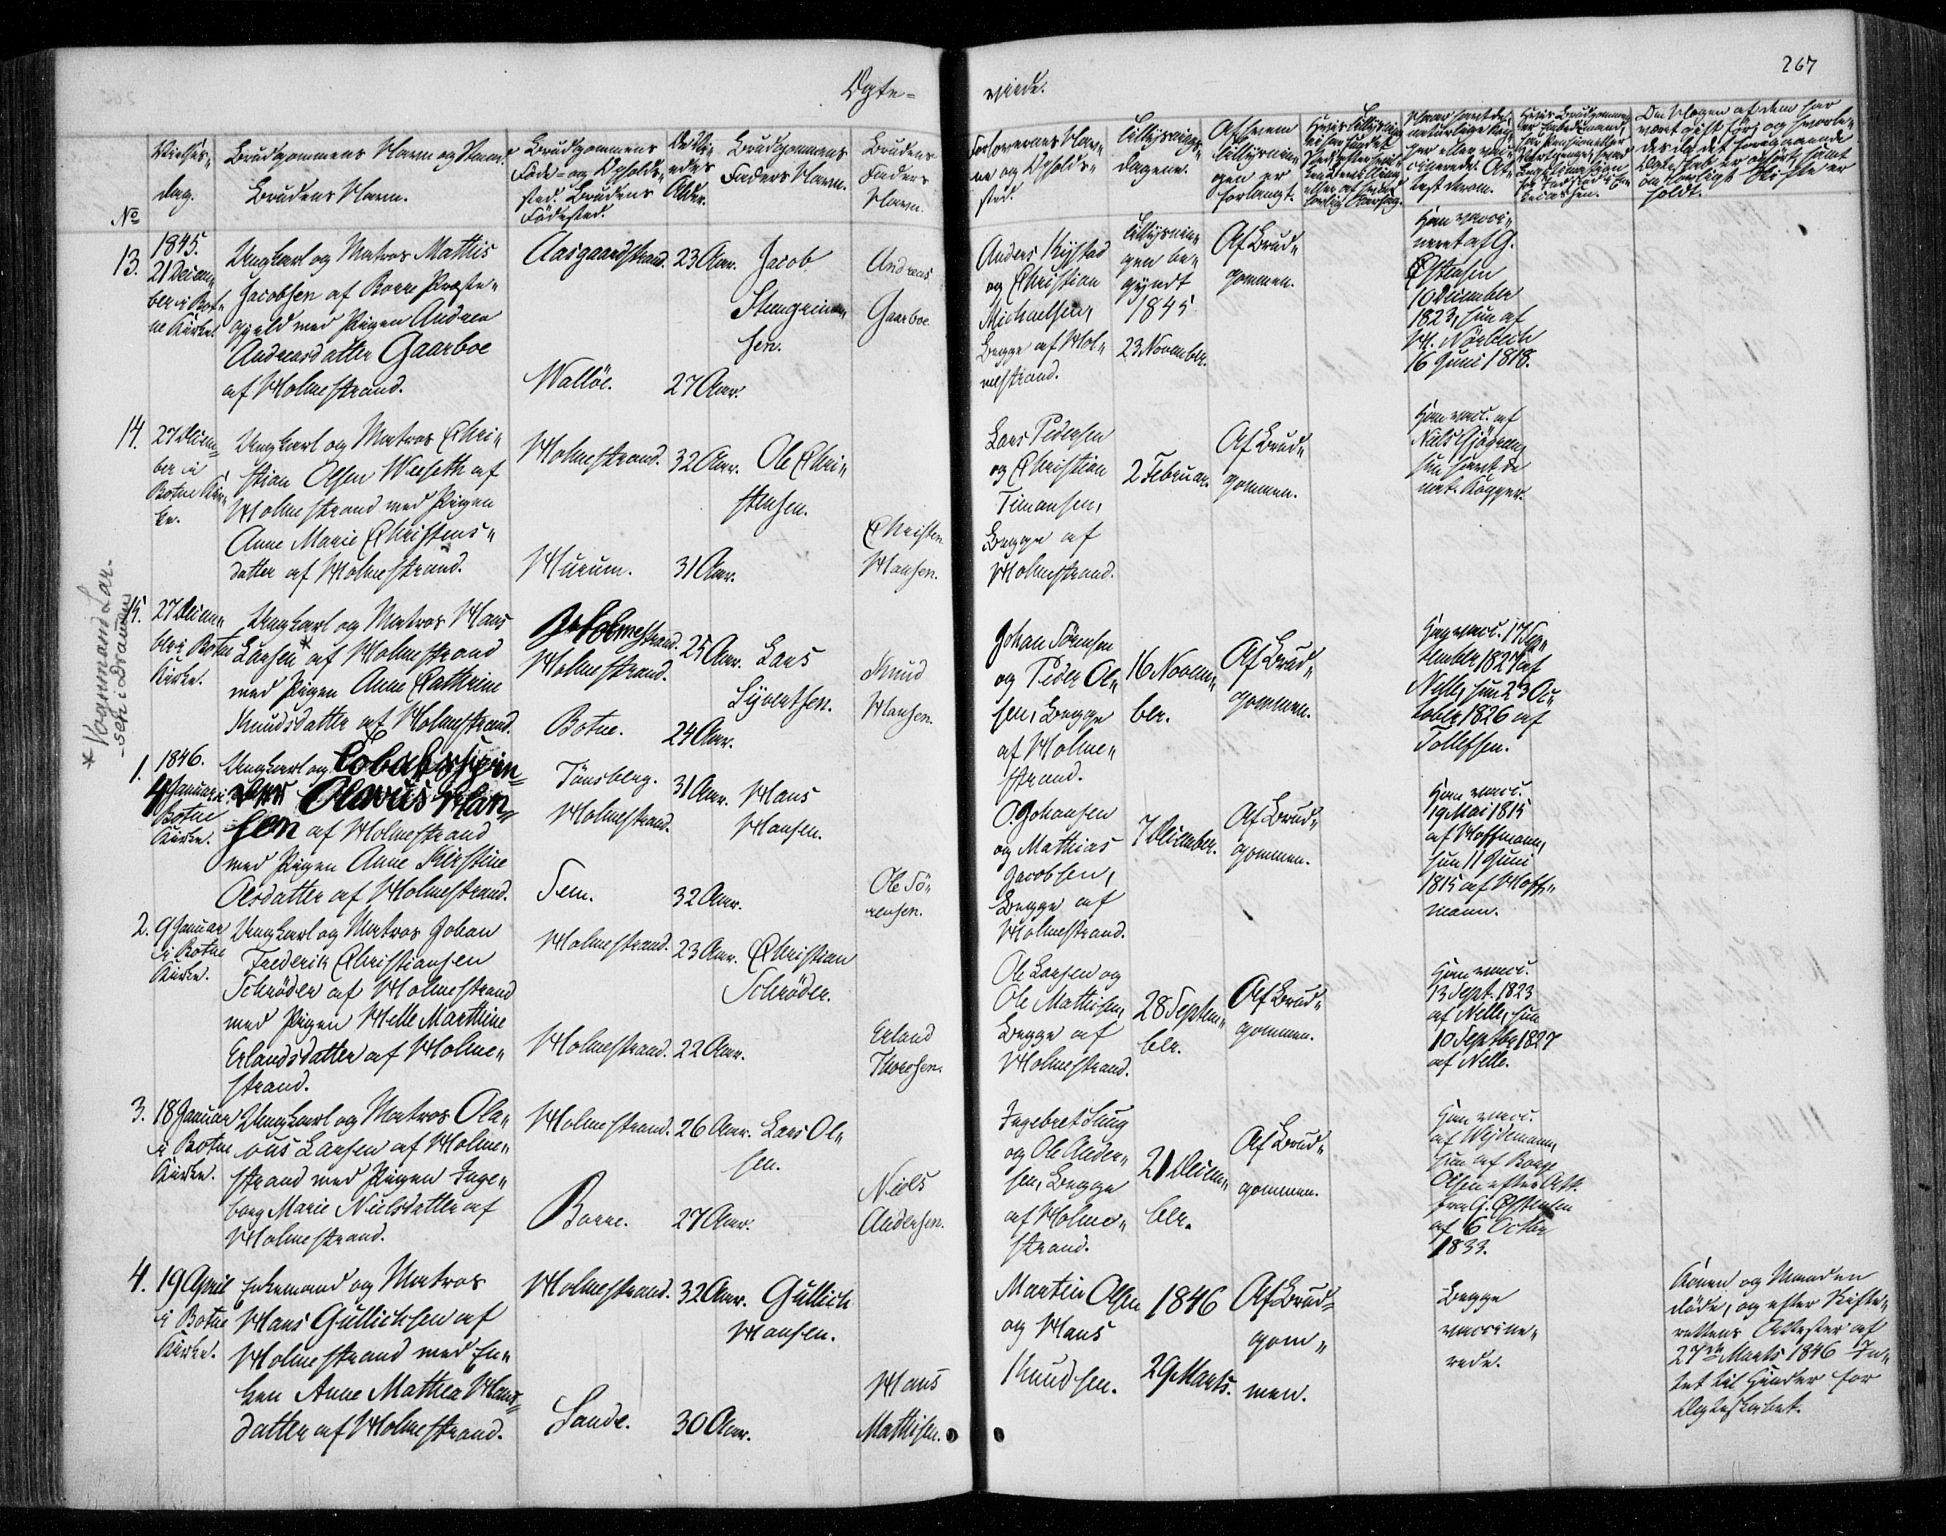 267
Ægte-
viede.
No
Vielses-
dag.
Brudgommens Navn og Stand.
Brudens Navn.
Brudgommens
Føde- og Opholds-
sted. Brudens
Fødested.
De Vi-
edes
Alder.
Brudgommens
Faders Navn.
Brudens
Faders
Navn.
Forlovernes Nav-
ne og Opholds-
sted.
Tillysnings-
dagene.
Af hvem
Tillysnin-
gen er
forlangt.
13.
1845.
21 Decem-
ber i Bot-
ne Kirke.
Ungkarl og Matros Mathis
Jacobsen af Borre Præste-
gjeld med Pigen Andrea
Andreasdatter Gaarboe
af Holmestrand.
Aasgaardstrand.
Walløe.
23 Aar.
27 Aar.
Jacob
Stengrim-
sen.
Andreas
Gaarboe
Anders Kystad
og Christian
Michaelsen,
Begge af Hol-
mestrand.
Tillysnin-
gen be-
gyndt
1845
23 November.
Af Brud-
gommen.
Han vacci-
neret af G.
Estensen
10 December
1823, hun af
16 Juni 1818.
14.
27 Decem-
ber i
Botne Kir-
ke.
Ungkarl og Matros Chri-
stian Olsen Weseth af
Holmestrand med Pigen
Anne Marie Christens-
datter af Holmestrand.
Holmestrand.
Hurum.
32 Aar.
31 Aar.
Ole Chri-
stensen.
Christen
Hansen.
Lars Pedersen
og Christian
Timansen,
Begge af
Holmestrand.
2 Februar.
Af Brud-
gommen.
Han vacc. af
Niels
hun havt de
nat. Kopper.
15.
27 Decem-
ber i Botne
Kirke.
Ungkarl og Matros Hans
Larsen * af Holmestrand
med Pigen Anne Cathrine
Knudsdatter af Holmestrand.
* Vognmand Lar-
-sen i Drammen
Holmestrand.
Holmestrand.
Botne.
25 Aar.
24 Aar.
Lars
Syvertsen.
Knud
Hansen.
Johan Sørensen
og Peder Ol-
sen, Begge
af Holme-
strand.
16 Novem-
ber.
Af Brud-
gommen.
Han vacc. 17 Sep-
tember 1827 af
Nelle, hun 23 Oc-
tober 1826 af
Tollefsen.
1.
1846.
4 Januar i
Botne
Kirke.
Ungkarl og Tobaksspin-
der Olavus Han-
sen af Holmestrand
med Pigen Anne Kirstine
Olsdatter af Holmestrand.
Tønsberg.
Holmestrand.
Sem.
31 Aar.
32 Aar.
Hans
Hansen.
Ole Sø-
rensen.
O. Johansen
og Mathias
Jacobsen,
Begge af
Holmestrand.
7 December.
Af Brud-
gommen.
Han vacc.
19 Mai 1815
af Hoffmann,
hun 11 Juni
1815 af Hoff-
mann.
2.
9 Januar
i Botne
Kirke.
Ungkarl og Matros Johan
Frederik Christiansen
Schrøder af Holmestrand
med Pigen Helle Marthine
Erlandsdatter af Holme-
strand.
Holmestrand.
Holmestrand.
23 Aar.
22 Aar.
Christian
Schrøder.
Erland
Thoresen.
Ole Larsen og
Ole Mathisen,
Begge af
Holmestrand.
28 Septem-
ber.
Af Brud-
gommen.
Han vacc.
13 Sept. 1823
af Nelle, hun
10 Septbr 1827
af Nelle.
3.
18 Januar
i Botne
Kirke.
Ungkarl og Matros Ola-
vus Larsen af Holme-
strand med Pigen Inge-
borg Marie Nielsdatter af
Holmestrand.
Holmestrand.
Borre.
26 Aar.
27 Aar.
Lars Ol-
sen.
Niels
Andersen.
Ingebret Haug
og Ole Ander-
sen, Begge
af Holme-
strand.
21 Decem-
ber.
Af Brud-
gommen.
Han vacc.
af Weidemann,
hun af Borge
Olsen efter Att.
fra G. Estensen
af 6 Octbr
1833.
4.
19 April
i Botne
Kirke.
Enkemand og Matros
Hans Gullichsen af
Holmestrand med En-
ken Anne Mathea Hans-
datter af Holmestrand.
Holmestrand.
Sande.
32 Aar.
30 Aar.
Gullich
Hansen.
Hans
Mathisen.
Martin Olsen
og Hans
Knudsen.
1846
29 Marts.
Af Brud-
gom-
men.
Begge
vaccine-
rede.
Konen og Manden
døde, og efter Skifte-
rettens Attester af
27de Marts 1846 In-
tet til Hinder for
Ægteskabet.